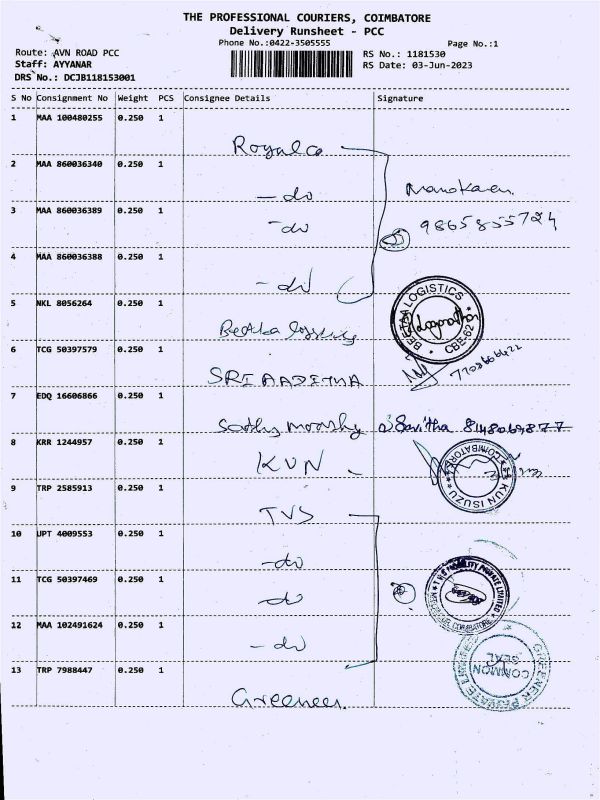 THE PROFESSIONAL COURIERS, COIMBATORE
Delivery Runsheet - PCC
Phone No.:0422-3505555
Page No.:1
Route: AVN ROAD PCC
RS No.: 1181530
Staff: AYYANAR
RS Date: 03-Jun-2023
DRS No.: DCJB118153001
S No Consignment No Weight PCS Consignee Details Signature
1 MAA 100480255 0.250 1
Royalca
2 MAA 860036340 0.250 1
- do Manokaran
3 MAA 860036389 0.250 1
- do 9865855724
4 MAA 860036388 0.250 1
- do
5 NKL 8056264 0.250 1
Beetaa logistics BEETAA LOGISTICS CBE-62
6 TCG 50397579 0.250 1
SRI AADITHA
7 EDQ 16606866 0.250 1
Sathy moorthy Savitha 8148069877
8 KRR 1244957 0.250 1
KUN KUN ISUZU COIMBATORE
9 TRP 2585913 0.250 1
TVS
10 UPT 4009553 0.250 1
- do
11 TCG 50397469 0.250 1
- do MOBILITY PRIVATE LIMITED COIMBATORE
12 MAA 102491624 0.250 1
- do
13 TRP 7988447 0.250 1
Greeneer GREENER PRIVATE LIMITED COMMON SEAL